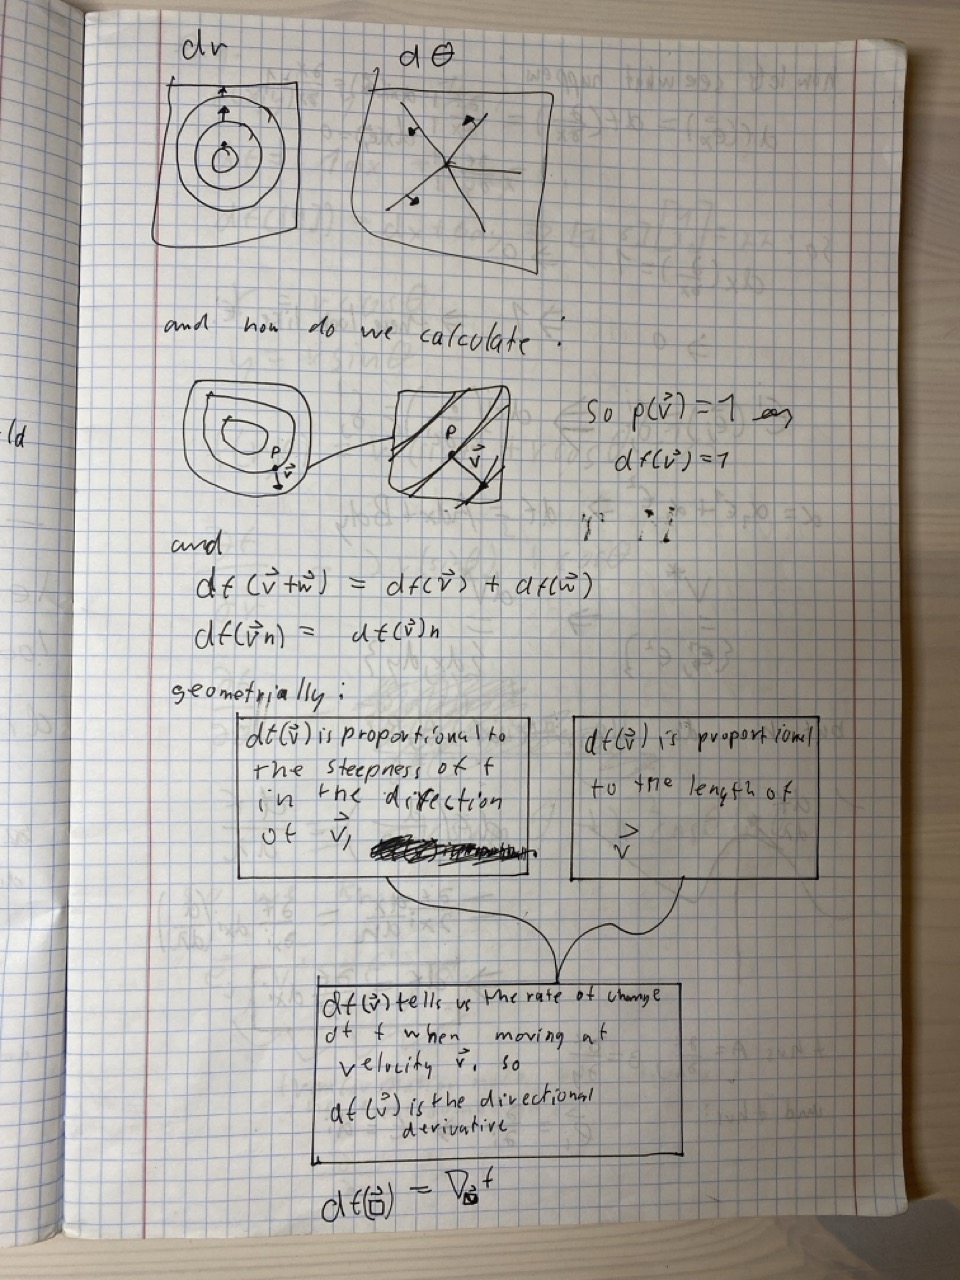 dr
dθ
and how do we calculate :
P
v⃗
P
v⃗
So p(v⃗) = 1
df(v⃗) = 1
and
df(v⃗+w⃗) = df(v⃗) + df(w⃗)
df(v⃗n) = df(v⃗)n
geometrially :
df(v⃗) is proportional to
the steepness of f
in the direction
of v⃗,
df(v⃗) is proportional
to the length of
v⃗
df(v⃗) tells us the rate of change
df f when moving at
velocity v⃗, so
df(v⃗) is the directional
derivative
df(□⃗) = ∇□⃗ f
ld